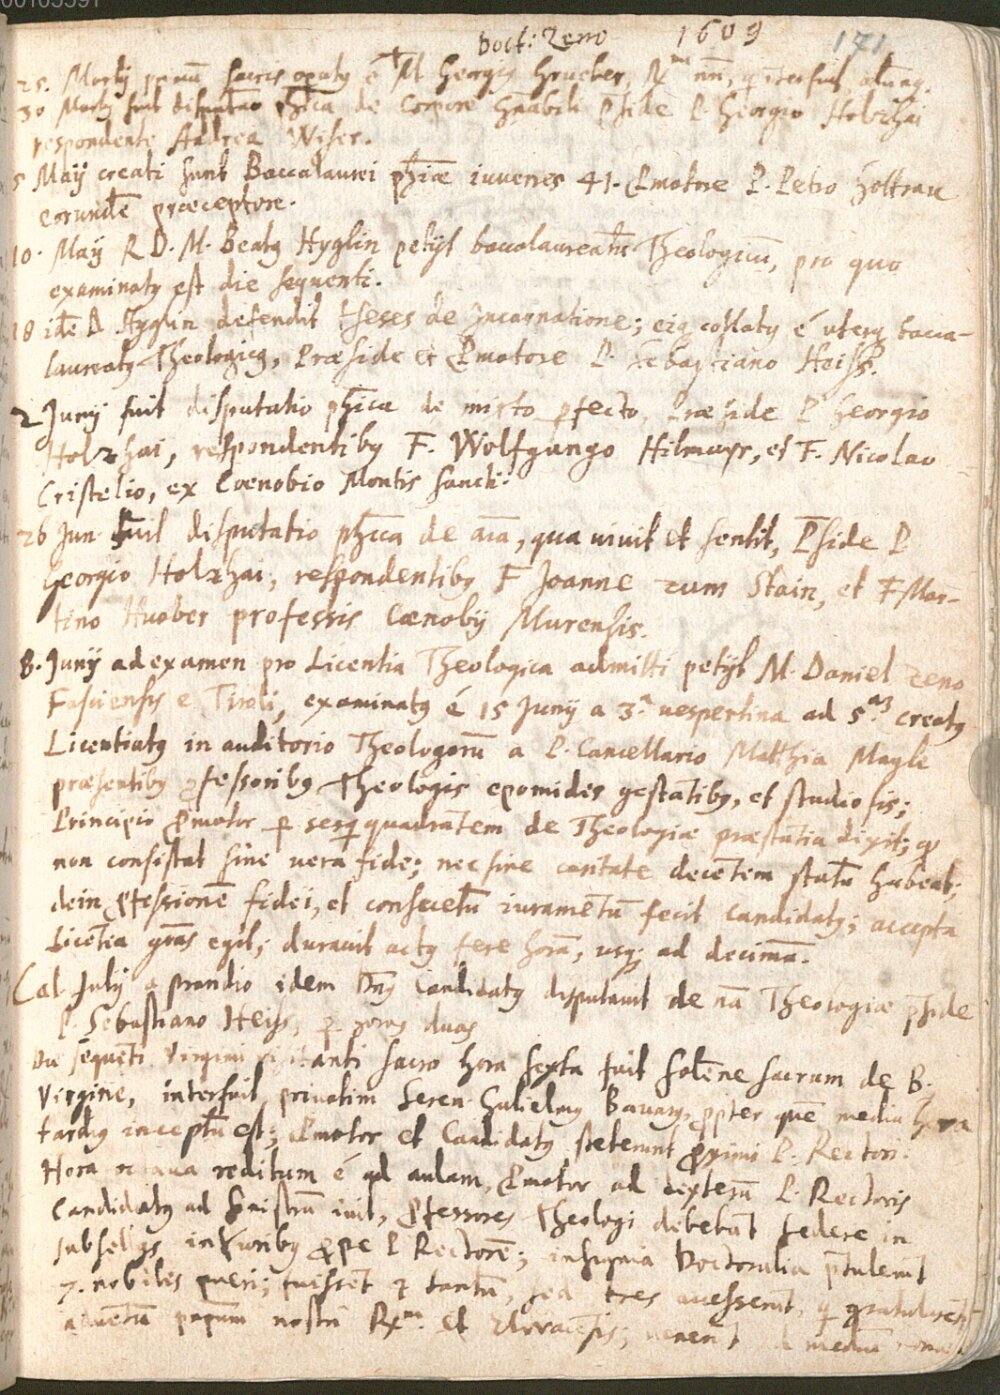 00103591
Doct: Zeno 1609 171
25. Martij primū sacris operatꝯ ē M Georgiꝯ Grueber, Rmꝯ
30 Martij fuit disputatio phica de Corpore P̄side P. Georgio Holzhai
respondente Andrea Wiser.
5 Maij creati sunt Baccalaurei phiæ iuvenes 41. P̄motore P. Petro Holtrau
eorundē præceptore.
10. Maij R D. M. Beatꝯ Hyglin petijt baccalaureatū Theologicū, pro quo
examinatꝯ est die sequenti.
18 idē D Hyglin defendit theses de Incarnatione; eiq; collatꝯ ē uterq; bacca-
laureatꝯ Theologicꝯ, Præside et P̄motore P. Sebastiano Heiss.
2 Junij fuit disputatio phica de mixto p̄fecto, Præside P Georgio
Holzhai, respondentibꝯ F. Wolfgango Hilmayr, et F. Nicolao
Cristelio, ex Cœnobio Montis sancti.
26 Jun. fuit disputatio phica de aīa, qua vivit et sentit, P̄side P
Georgio Holzhai, respondentibꝯ F Joanne zum Stain, et F Mar-
tino Huober professis Cœnobij Murensis.
8. Junij ad examen pro Licentia Theologica admitti petijt M. Daniel Zeno
Fassiensis e Tiroli, examinatꝯ ē 15 Junij a 3.ª vespertina ad 5.am creatꝯ
Licentiatꝯ in auditorio Theologorū a P. Cancellario Matthia Mayle
præsentibꝯ p̄fessoribꝯ Theologis epomides gestātibꝯ, et studiosis;
Principio P̄motor p sesquiquadrantem de Theologiæ præstātia dixit; qꝫ
non consistat sine vera fide; nec sine caritate decētem statū habeat;
dein p̄fessionē fidei, et consuetū iuramētū fecit Candidatꝯ; accepta
Licētia grās egit; duravit actꝯ fere horā, usq; ad decimā.
Cal. Julij a prandio idem Dnꝯ Candidatꝯ disputavit de nā Theologiæ p̄side
P. Sebastiano Heiss, p horas duas
Die sequenti Virgini visitanti sacro hora sexta fuit solēne sacrum de B.
Virgine, interfuit privatim Seren. Gulielmꝯ Bavarꝯ, p̄pter quē media hora
tardiꝯ inceptū est; P̄motor et Candidatꝯ steterunt p̄ximi P. Rectori.
Hora octava reditum ē ad aulam, P̄motor ad dexterā P. Rectoris
Candidatꝯ ad sinistrā ivit, P̄fessores Theologi debebāt sedere in
subsellijs inferioribꝯ p̄pe P Rectorē; insignia Doctoralia p̄tulerūt
7. nobiles pueri; fuissēt tantū, sed tres accesserūt, qꝫ gratularent
adventū nostri Rmi. et